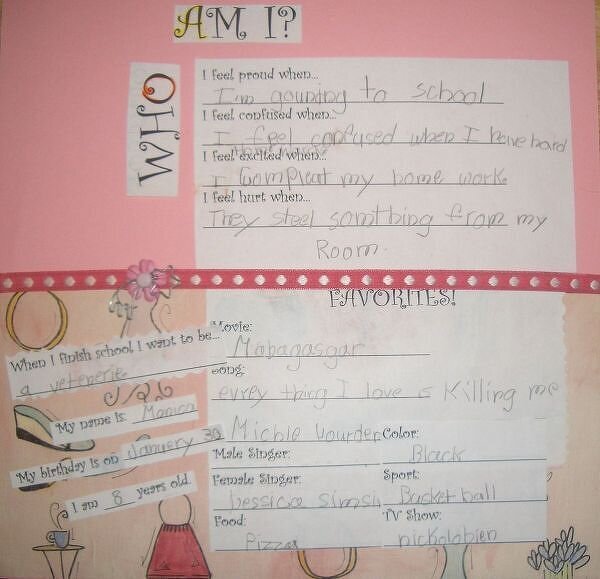 AM I?
WHO
I feel proud when...
I'm gounting to school
I feel confused when...
I feel confused when I have hard
I feel excited when...
I Compleat my home work
I feel hurt when...
They steel somthing from my
Room.
FAVORITES!
Movie:
Mabagasgar
Song:
evrey thing I love is Killing me
When I finish school I want to be...
a vetenerie
My name is: Monica
My birthday is on January 30
I am 8 years old.
Male Singer:
Michle
Color:
Black
Female Singer:
Jessica
Sport:
Basket ball
Food:
Pizza
TV Show:
nickolobien